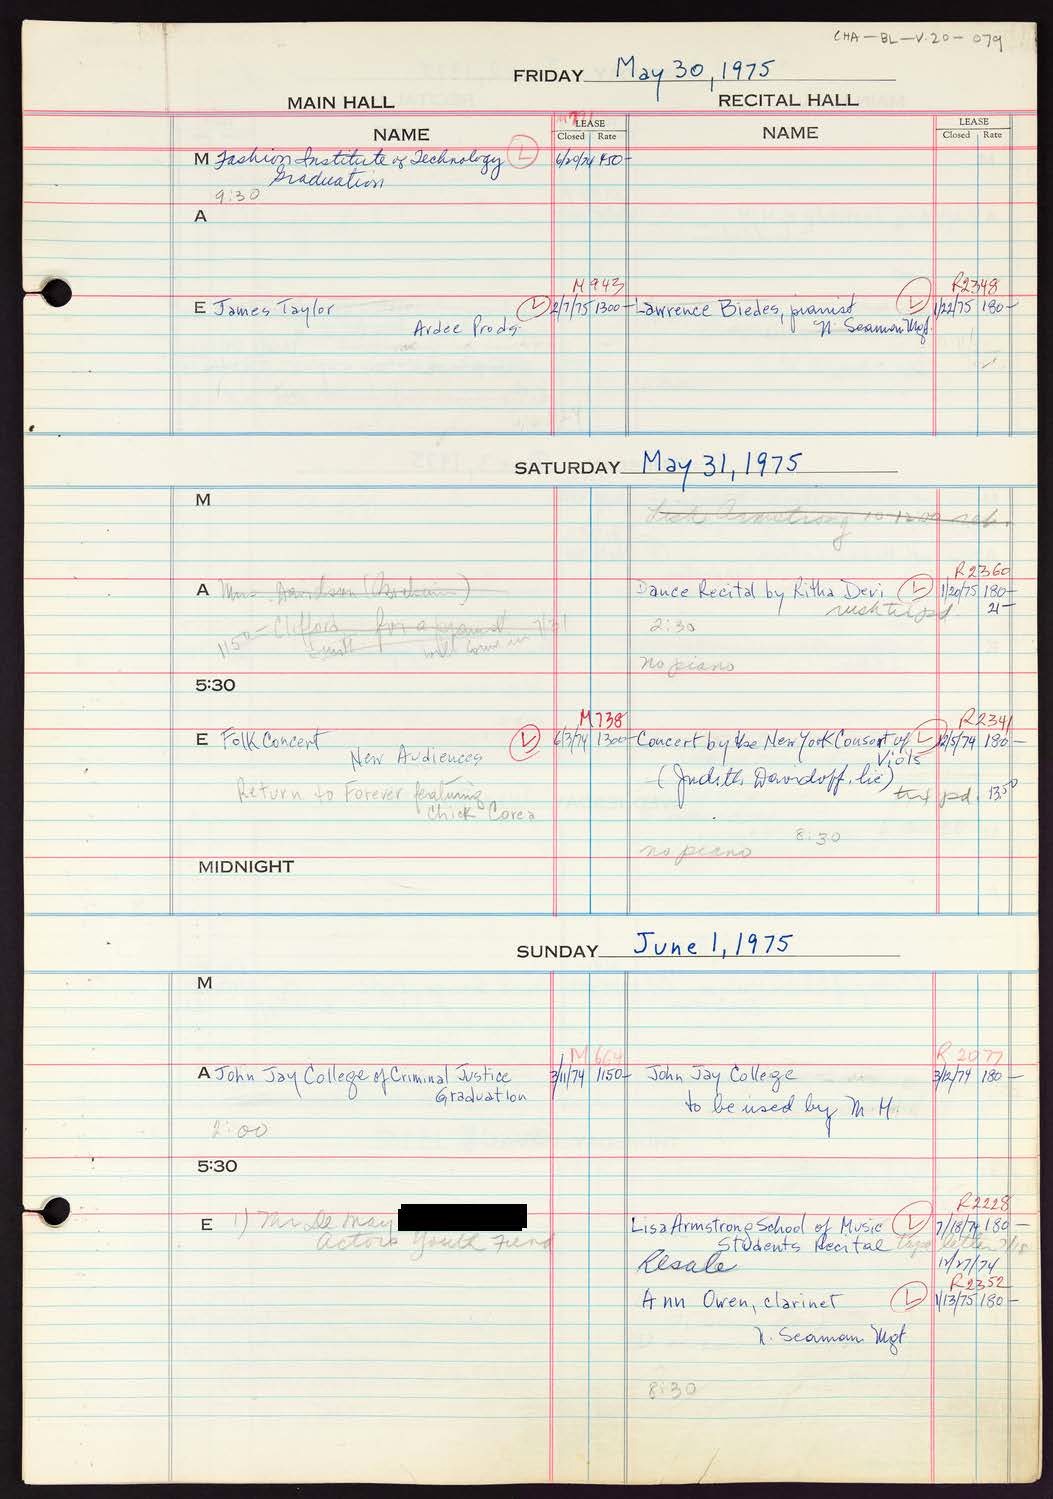 CHA-BL-V.20-079
FRIDAY May 30, 1975
MAIN HALL RECITAL HALL
M 791
NAME LEASE Closed Rate NAME LEASE Closed Rate
M Fashion Institute of Technology L 6/20/74 950-
Graduation
9:30
A
M 943 R2348
E James Taylor L 2/7/75 1300- Lawrence Biedes, pianist L 1/22/75 180-
Ardee Prods. N. Seaman Mgt.
SATURDAY May 31, 1975
M
Lisa Armstrong 10-12:00 reh.
R2360
A Mrs. Davidson Dance Recital by Ritha Devi L 1/20/75 180-
rush tix pd. 21-
1150- Clifford for a 7/31
will come in
2:30
no piano
5:30
M738 R2341
E Folk Concert L 6/3/74 1300- Concert by the New York Consort of L 12/5/74 180-
New Audiences Viols
(Judith Davidoff, lic)
Return to Forever featuring tax pd. 13.50
Chick Corea
8:30
no piano
MIDNIGHT
SUNDAY June 1, 1975
M
M 664 R 2077
A John Jay College of Criminal Justice 3/11/74 1150- John Jay College 3/12/74 180-
Graduation
to be used by M.H.
2:00
5:30
R2228
E 1) Mr. De May Lisa Armstrong School of Music L 7/18/74 180-
Actors Youth Fund Students Recital letter 7/18
Resale 12/27/74
R2352
Ann Owen, clarinet L 1/13/75 180-
N. Seaman Mgt
8:30